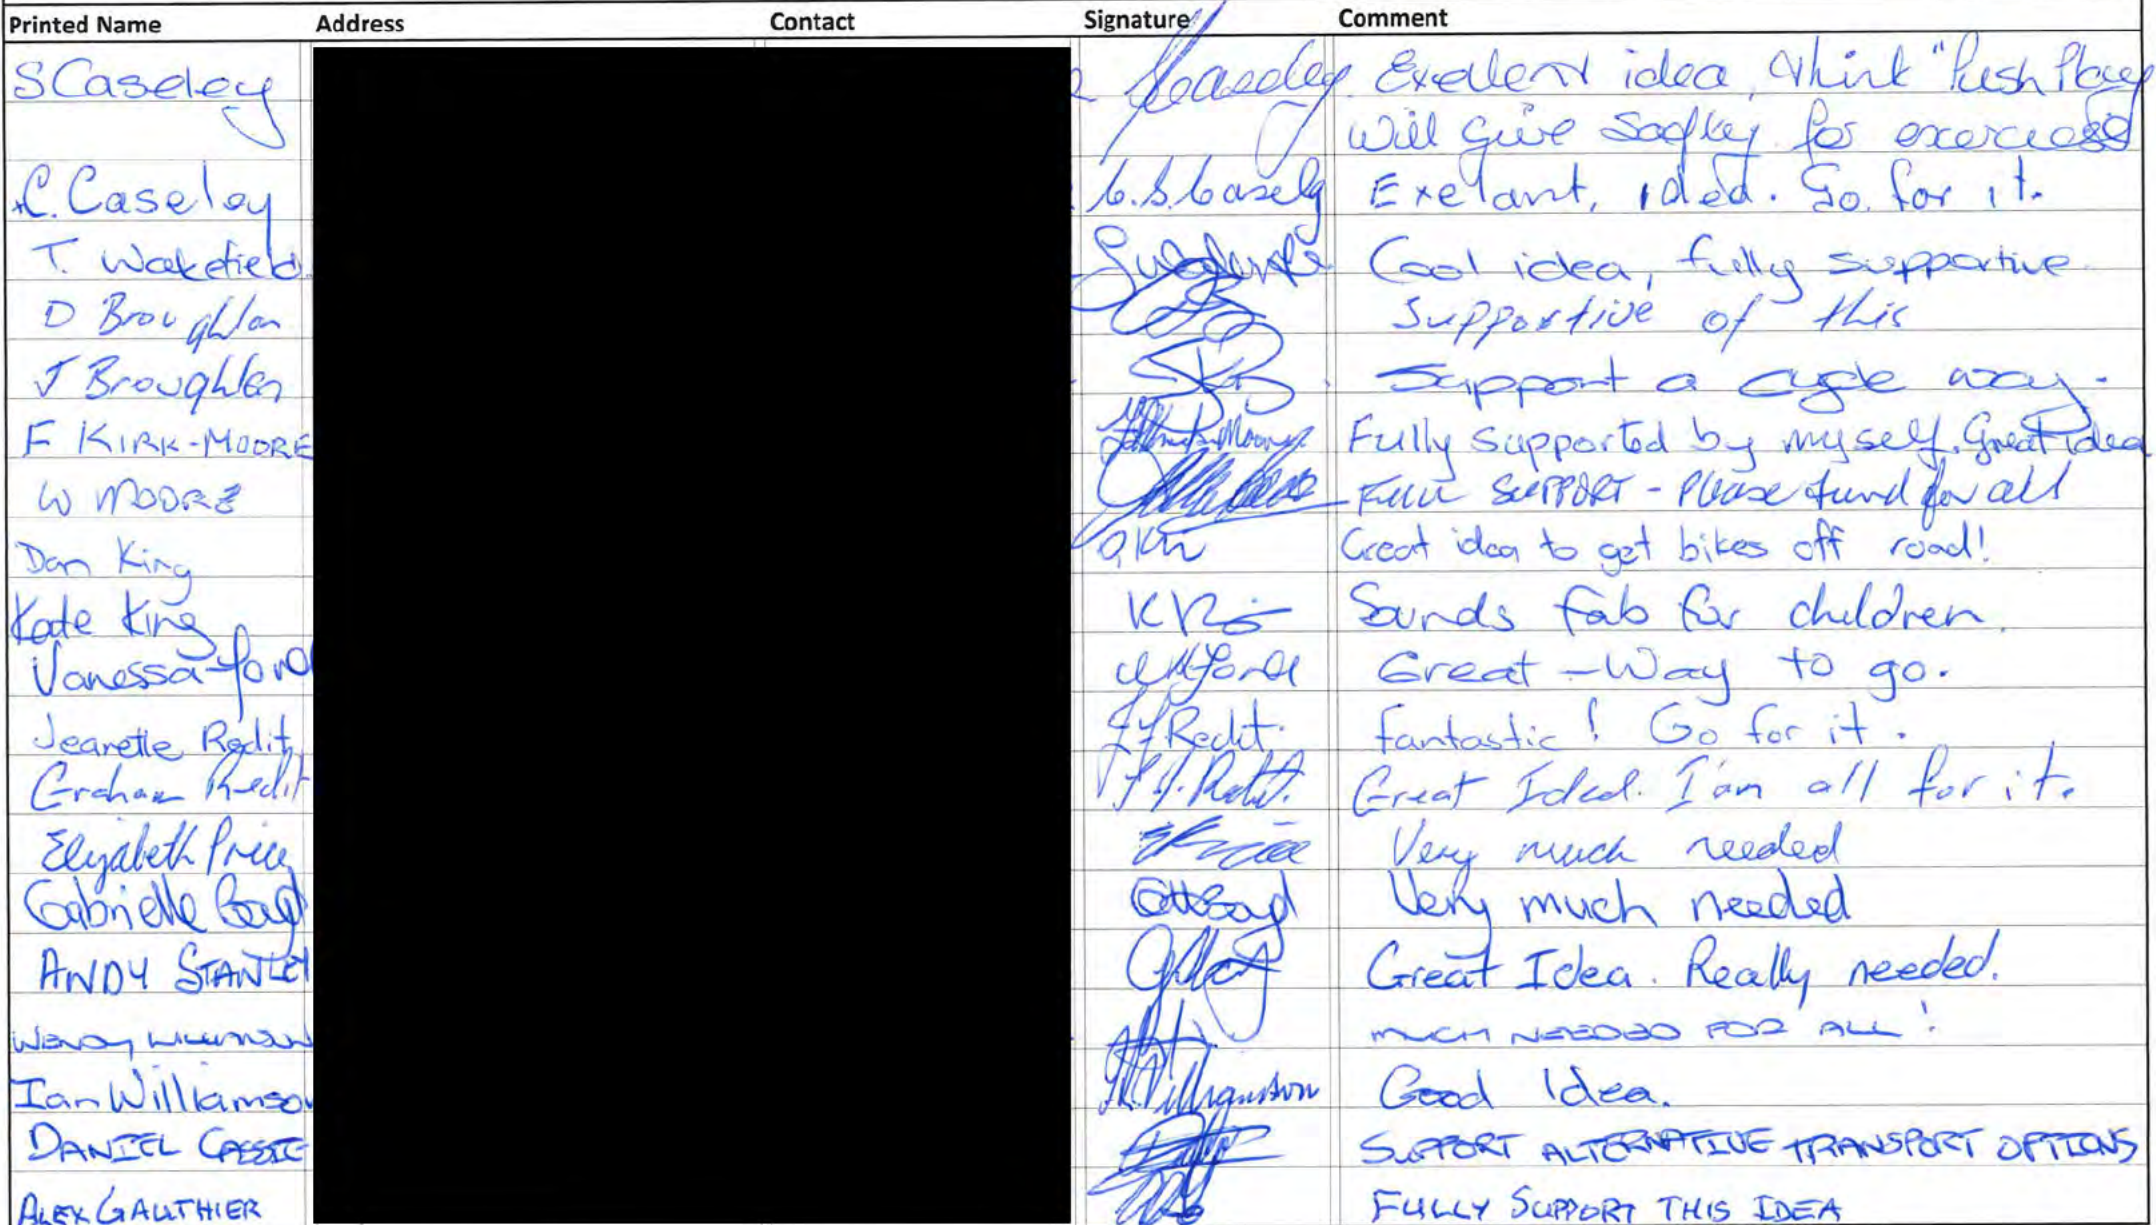 Printed Name Address Contact Signature Comment
S Caseley Exellent idea, think "Push Play"
will give saftey for exercise
C. Caseley C.S. Casely Exelant, idea. Go for it.
T. Wakefield Cool idea, fully supportive
D Broughton Supportive of this
J Broughton Support a cycle way.
F KIRK-MOORE Fully supported by myself. Great idea
W MOORE FULL SUPPORT - Please fund for all
Dan King Great idea to get bikes off road!
Kate King Sounds fab for children.
Vanessa Ford Great - Way to go.
Jeanette Redit J Redit. Fantastic! Go for it.
Graham Redit Great Idea. I'am all for it.
Elizabeth Price Very much needed
Gabrielle Very much needed
ANDY STANLEY Great Idea. Really needed.
Wendy MUCH NEEDED FOR ALL!
Ian Williamson Williamson Good Idea.
DANIEL CASSIE SUPPORT ALTERNATIVE TRANSPORT OPTIONS
ALEX GAUTHIER FULLY SUPPORT THIS IDEA